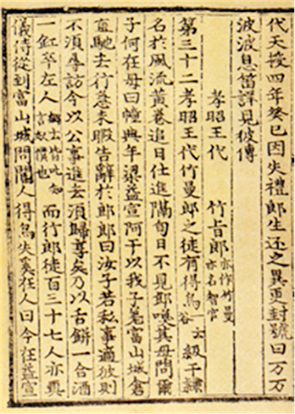 代天授四年癸巳因失禮郎生還之異更封號曰万万
波波息笛詳見彼傳
孝昭王代 竹旨郎 亦作竹曼 亦名智官
第三十二孝昭王代竹曼郎之徒有得烏 一云谷 級干隷
名於風流黃卷追日仕進隔旬日不見郎喚其母問爾
子何在母曰幢典牟梁益宣阿干以我子差富山城倉
直馳去行急未暇告辭於郎郎曰汝子若私事適彼則
不須尋訪今以公事進去須歸享矣乃以舌餅一合酒
一缸卒左人 鄉云皆叱知 言奴僕也 而行郎徒百三十七人亦具
儀侍從到富山城問閽人得烏失奚在人曰今在益宣